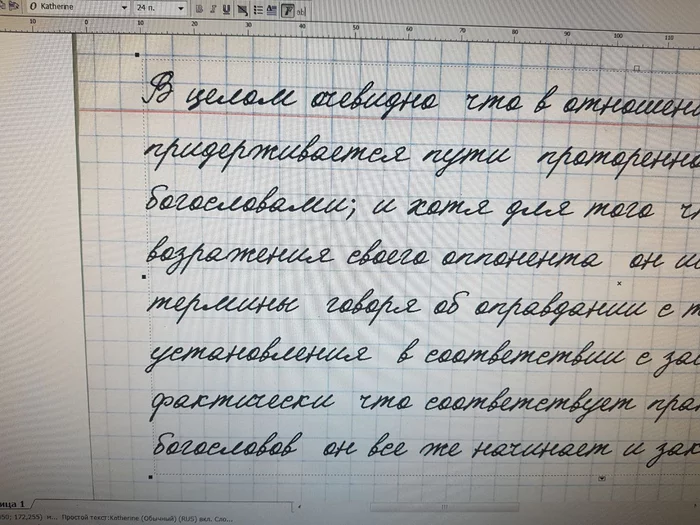 Katherine 24 п. B I U ab
10 0 10 20 30 40 50 60 70 80 90 100 110
В целом очевидно что в отношени
придерживается пути проторенно
богословами; и хотя для того
возражения своего оппонента он
термины говоря об оправдании с
установления в соответствии с
фактически что соответствует
богословов он все же начинает и зак
ица 1
950; 172,255) Простой текст:Katherine (Обычный) (RUS) вкл. Сло...